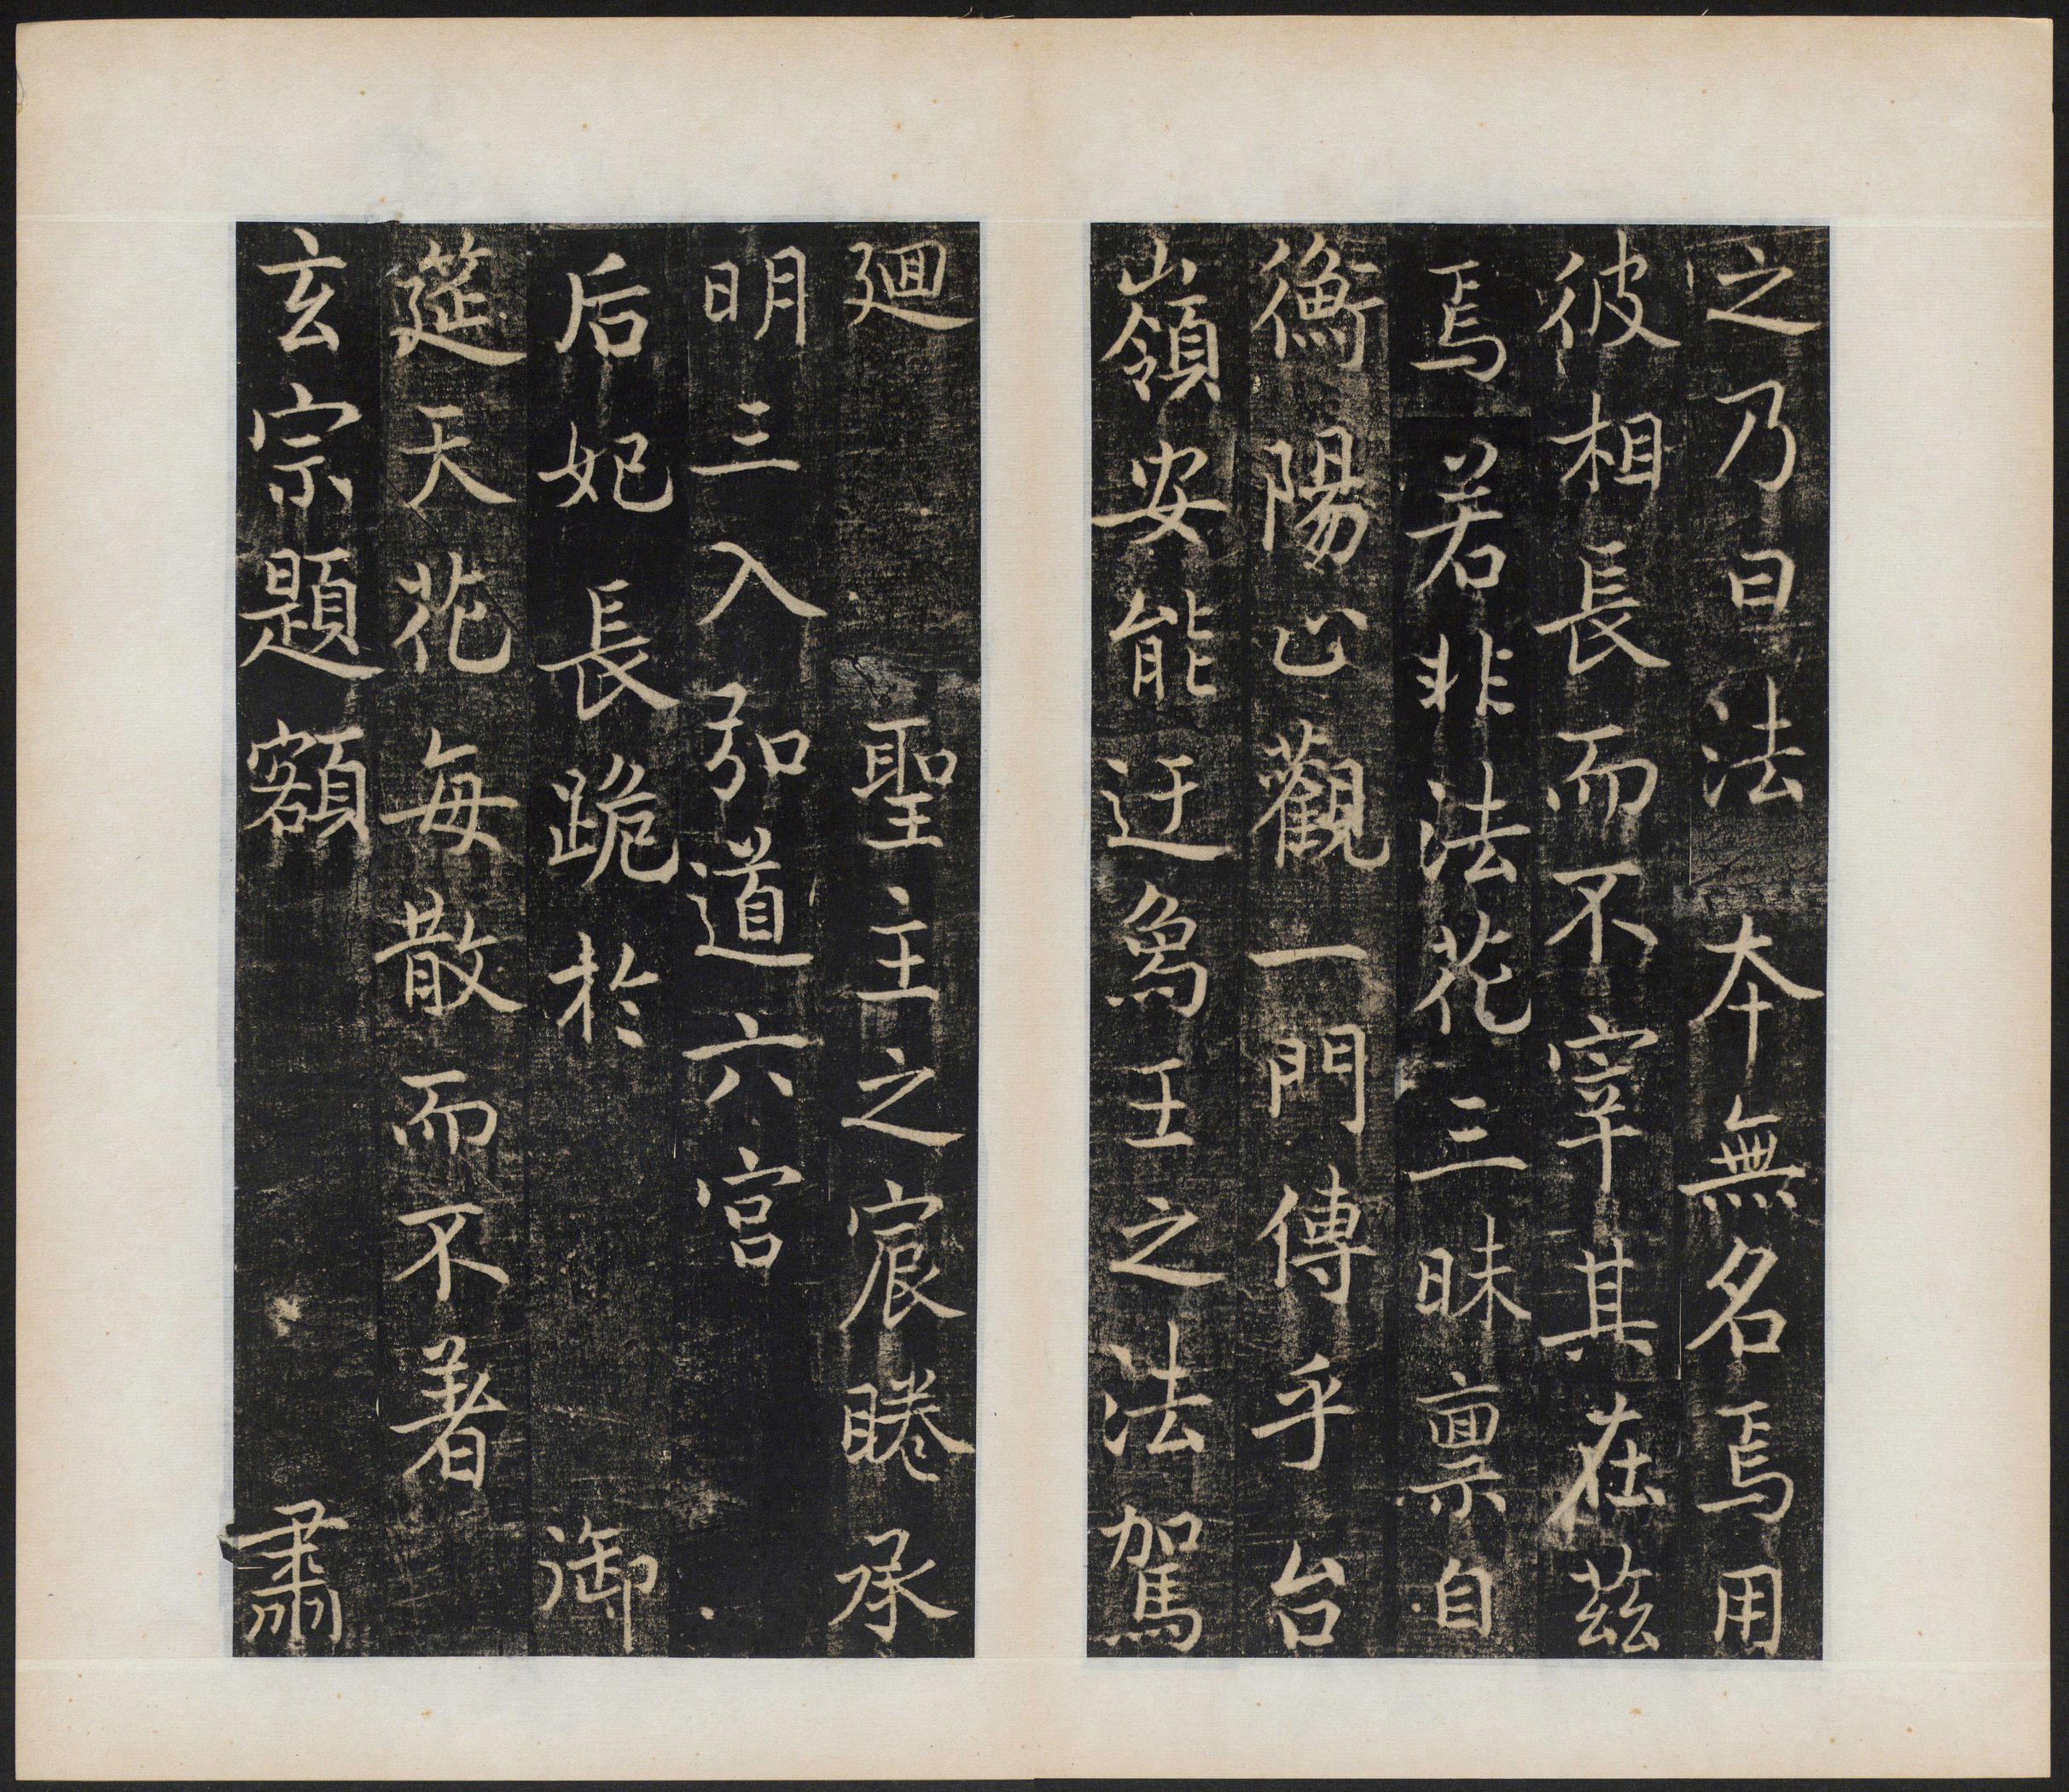 之乃曰法夲無名焉用
彼相長而不宰其在茲
焉若非法花三昧禀自
衡陽止觀一門傳乎台
嶺安能迂為王之法駕
迴聖主之宸睠承
明三入弘道六宮
后妃長跪於御
筵天花每散而不著
玄宗題額肅